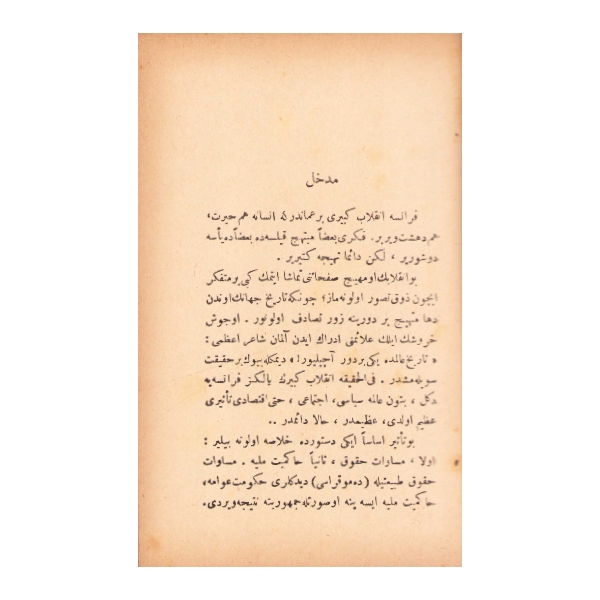 مدخل
فرانسه انقلاب كبيرى بر عماندركه انسانه هم حيرت،
هم دهشت ويرير. فكرى بعضاً مبتهج قيلسه ده بعضاً ده يأسه
دوشورير ، لكن دائما تهيجه كتيرير .
بو انقلابك او مهيج صفحاتنى تماشا ايتمك كبى بر متفكر
ايچون ذوق تصور اولونه ماز؛ چونكه تاريخ جهانك اوندن
دها مهيج بر دورينه زور تصادف اولونور . او جوش
خروشك ايلك علائمنى ادراك ايدن آلمان شاعر اعظمى :
« تاريخ عالمده يكى بر دور آچيليور! » ديمكله بيوك بر حقيقت
سويله مشدر . فى الحقيقه انقلاب كبيرك يالكز فرانسه يه
دكل ، بتون عالمه سياسى، اجتماعى ، حتى اقتصادى تأثيرى
عظيم اولدى، عظيمدر ، حالا دائمدر ..
بو تأثير اساساً ايكى دستورده خلاصه اولونه بيلير :
اولا ، مساوات حقوق ، ثانياً حاكميت مليه . مساوات
حقوق طبيعتيله (ده موقراسى) ديدكلرى حكومت عوامه،
حاكميت مليه ايسه ينه او صورتله جمهوريته نتيجه ويردى.